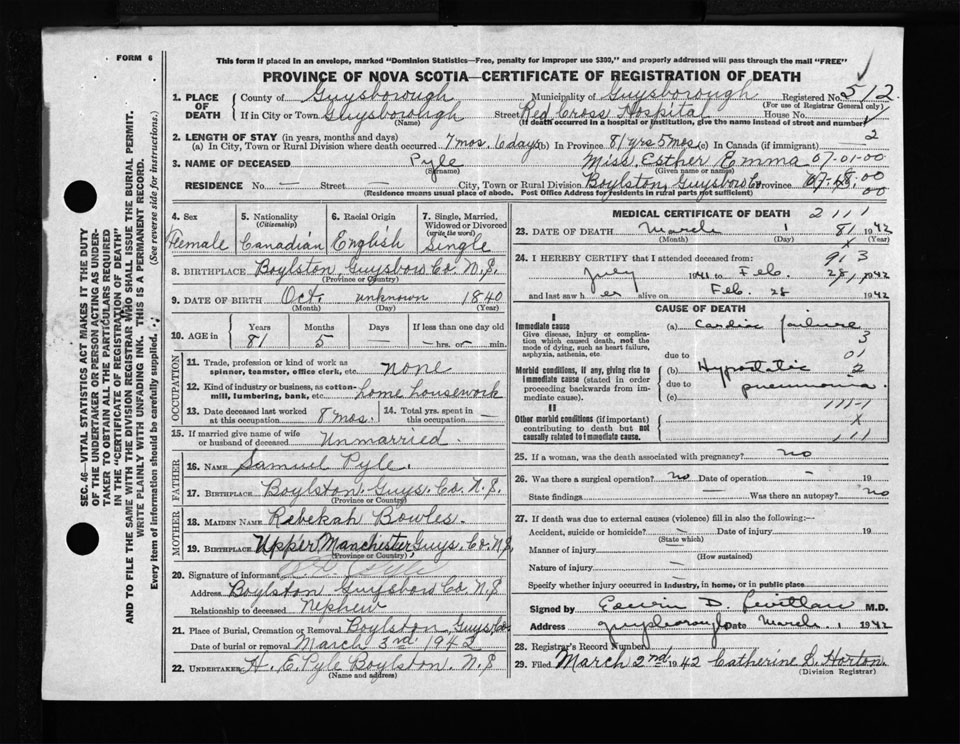 FORM 6
This form if placed in an envelope, marked "Dominion Statistics—Free, penalty for improper use $300," and properly addressed will pass through the mail "FREE"
PROVINCE OF NOVA SCOTIA—CERTIFICATE OF REGISTRATION OF DEATH
1. PLACE OF DEATH County of Guysborough Municipality of Guysborough Registered No. 512
(For use of Registrar General only)
If in City or Town Guysborough Street Red Cross Hospital House No.
(Name) (If death occurred in a hospital or institution, give the name instead of street and number)
2. LENGTH OF STAY (in years, months and days)
(a) In City, Town or Rural Division where death occurred 7 mos. 6 days (b) In Province 81 yrs 5 mos. (c) In Canada (if immigrant) — 2
3. NAME OF DECEASED Pyle Miss Esther Emma 07-01-00
(Surname) (Given name or names)
RESIDENCE No. — Street — City, Town or Rural Division Boylston, Guysboro Co. Province
(Residence means usual place of abode. Post Office Address for residents in rural parts not sufficient) 00
4. Sex Female
5. Nationality (Citizenship) Canadian
6. Racial Origin English
7. Single, Married, Widowed or Divorced (write the word) Single
8. BIRTHPLACE Boylston, Guysboro Co. N.S.
(Province or Country)
9. DATE OF BIRTH Oct. unknown 1840
(Month) (Day) (Year)
10. AGE in Years 81 Months 5 Days — If less than one day old —hrs. or — min.
OCCUPATION
11. Trade, profession or kind of work as spinner, teamster, office clerk, etc. none
12. Kind of industry or business, as cotton-mill, lumbering, bank, etc. home housework
13. Date deceased last worked at this occupation 8 mos. 14. Total yrs. spent in this occupation —
15. If married give name of wife or husband of deceased Unmarried.
FATHER
16. NAME Samuel Pyle.
17. BIRTHPLACE Boylston. Guys. Co. N.S.
(Province or Country)
MOTHER
18. MAIDEN NAME Rebekah Bowles.
19. BIRTHPLACE Upper Manchester, Guys. Co. N.S.
(Province or Country)
20. Signature of informant Pyle
Address Boylston Guysboro Co. N.S
Relationship to deceased Nephew
21. Place of Burial, Cremation or Removal Boylston, Guys. Co.
Date of burial or removal March 3rd. 1942
22. UNDERTAKER H. E. Pyle Boylston. N.S
(Name and address)
MEDICAL CERTIFICATE OF DEATH 2111
23. DATE OF DEATH March 1 1942
(Month) (Day) (Year)
81 x
24. I HEREBY CERTIFY that I attended deceased from: 913
July 1941 to Feb. 28, 1942
and last saw her alive on Feb. 28 1942
CAUSE OF DEATH
I
Immediate cause
Give disease, injury or complication which caused death, not the mode of dying, such as heart failure, asphyxia, asthenia, etc.
(a) Cardiac failure 3
due to 01
Morbid conditions, if any, giving rise to immediate cause (stated in order proceeding backwards from immediate cause).
(b) Hypostatic 2
due to pneumonia.
(c) 111-1
II
Other morbid conditions (if important) contributing to death but not causally related to immediate cause. x
111
25. If a woman, was the death associated with pregnancy? no
26. Was there a surgical operation? no Date of operation — 19
State findings — Was there an autopsy? no
27. If death was due to external causes (violence) fill in also the following:—
Accident, suicide or homicide? — Date of injury 19
(State which)
Manner of injury —
(How sustained)
Nature of injury —
Specify whether injury occurred in industry, in home, or in public place —
Signed by Edwin D. M.D.
Address Guysborough Date March 1 1942
28. Registrar's Record Number
29. Filed March 2nd 1942 Catherine L. Horton.
(Division Registrar)
SEC. 46—VITAL STATISTICS ACT MAKES IT THE DUTY
OF THE UNDERTAKER OR PERSON ACTING AS UNDER-
TAKER TO OBTAIN ALL THE PARTICULARS REQUIRED
IN THE "CERTIFICATE OF REGISTRATION OF DEATH"
AND TO FILE THE SAME WITH THE DIVISION REGISTRAR WHO SHALL ISSUE THE BURIAL PERMIT.
WRITE PLAINLY WITH UNFADING INK. THIS IS A PERMANENT RECORD.
Every item of information should be carefully supplied. (See reverse side for instructions.)